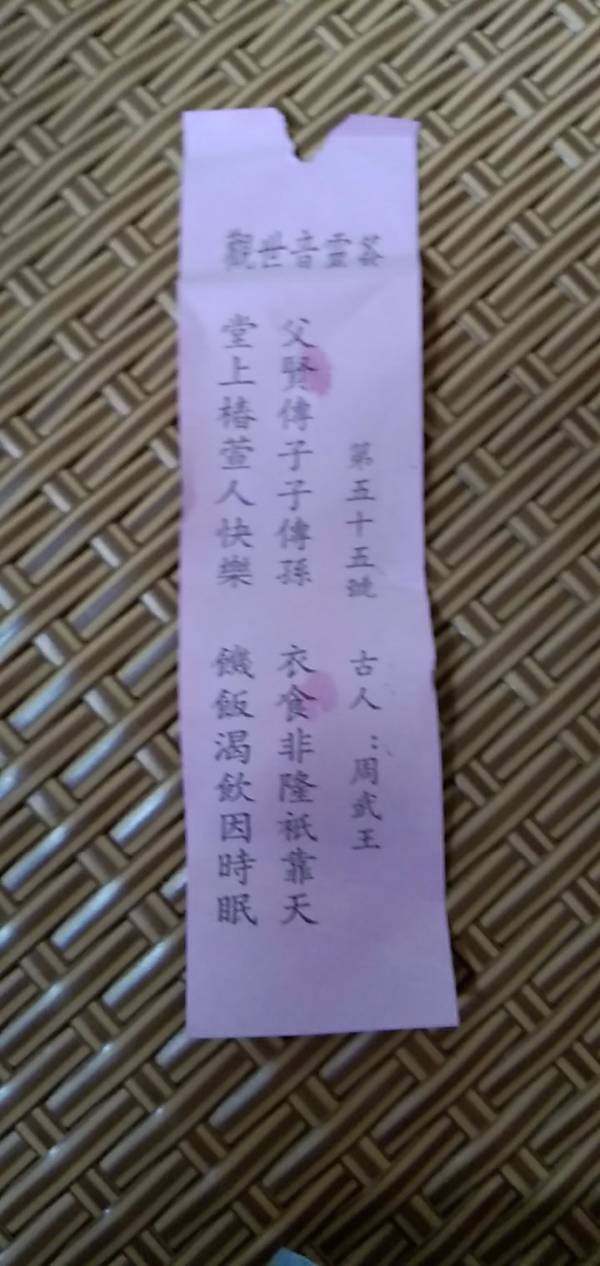 觀世音靈簽
第五十五號 古人：周武王
父賢傳子子傳孫 衣食非隆祇靠天
堂上椿萱人快樂 饑飯渴飲因時眠